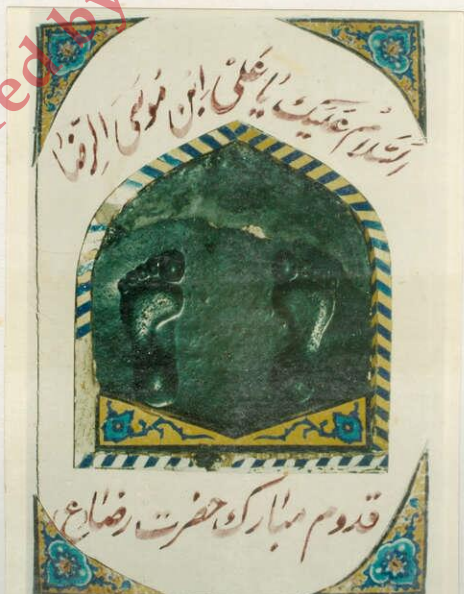 السلام علیک یا علی ابن موسی الرضا
قدوم مبارک حضرت رضا(ع)
ed by